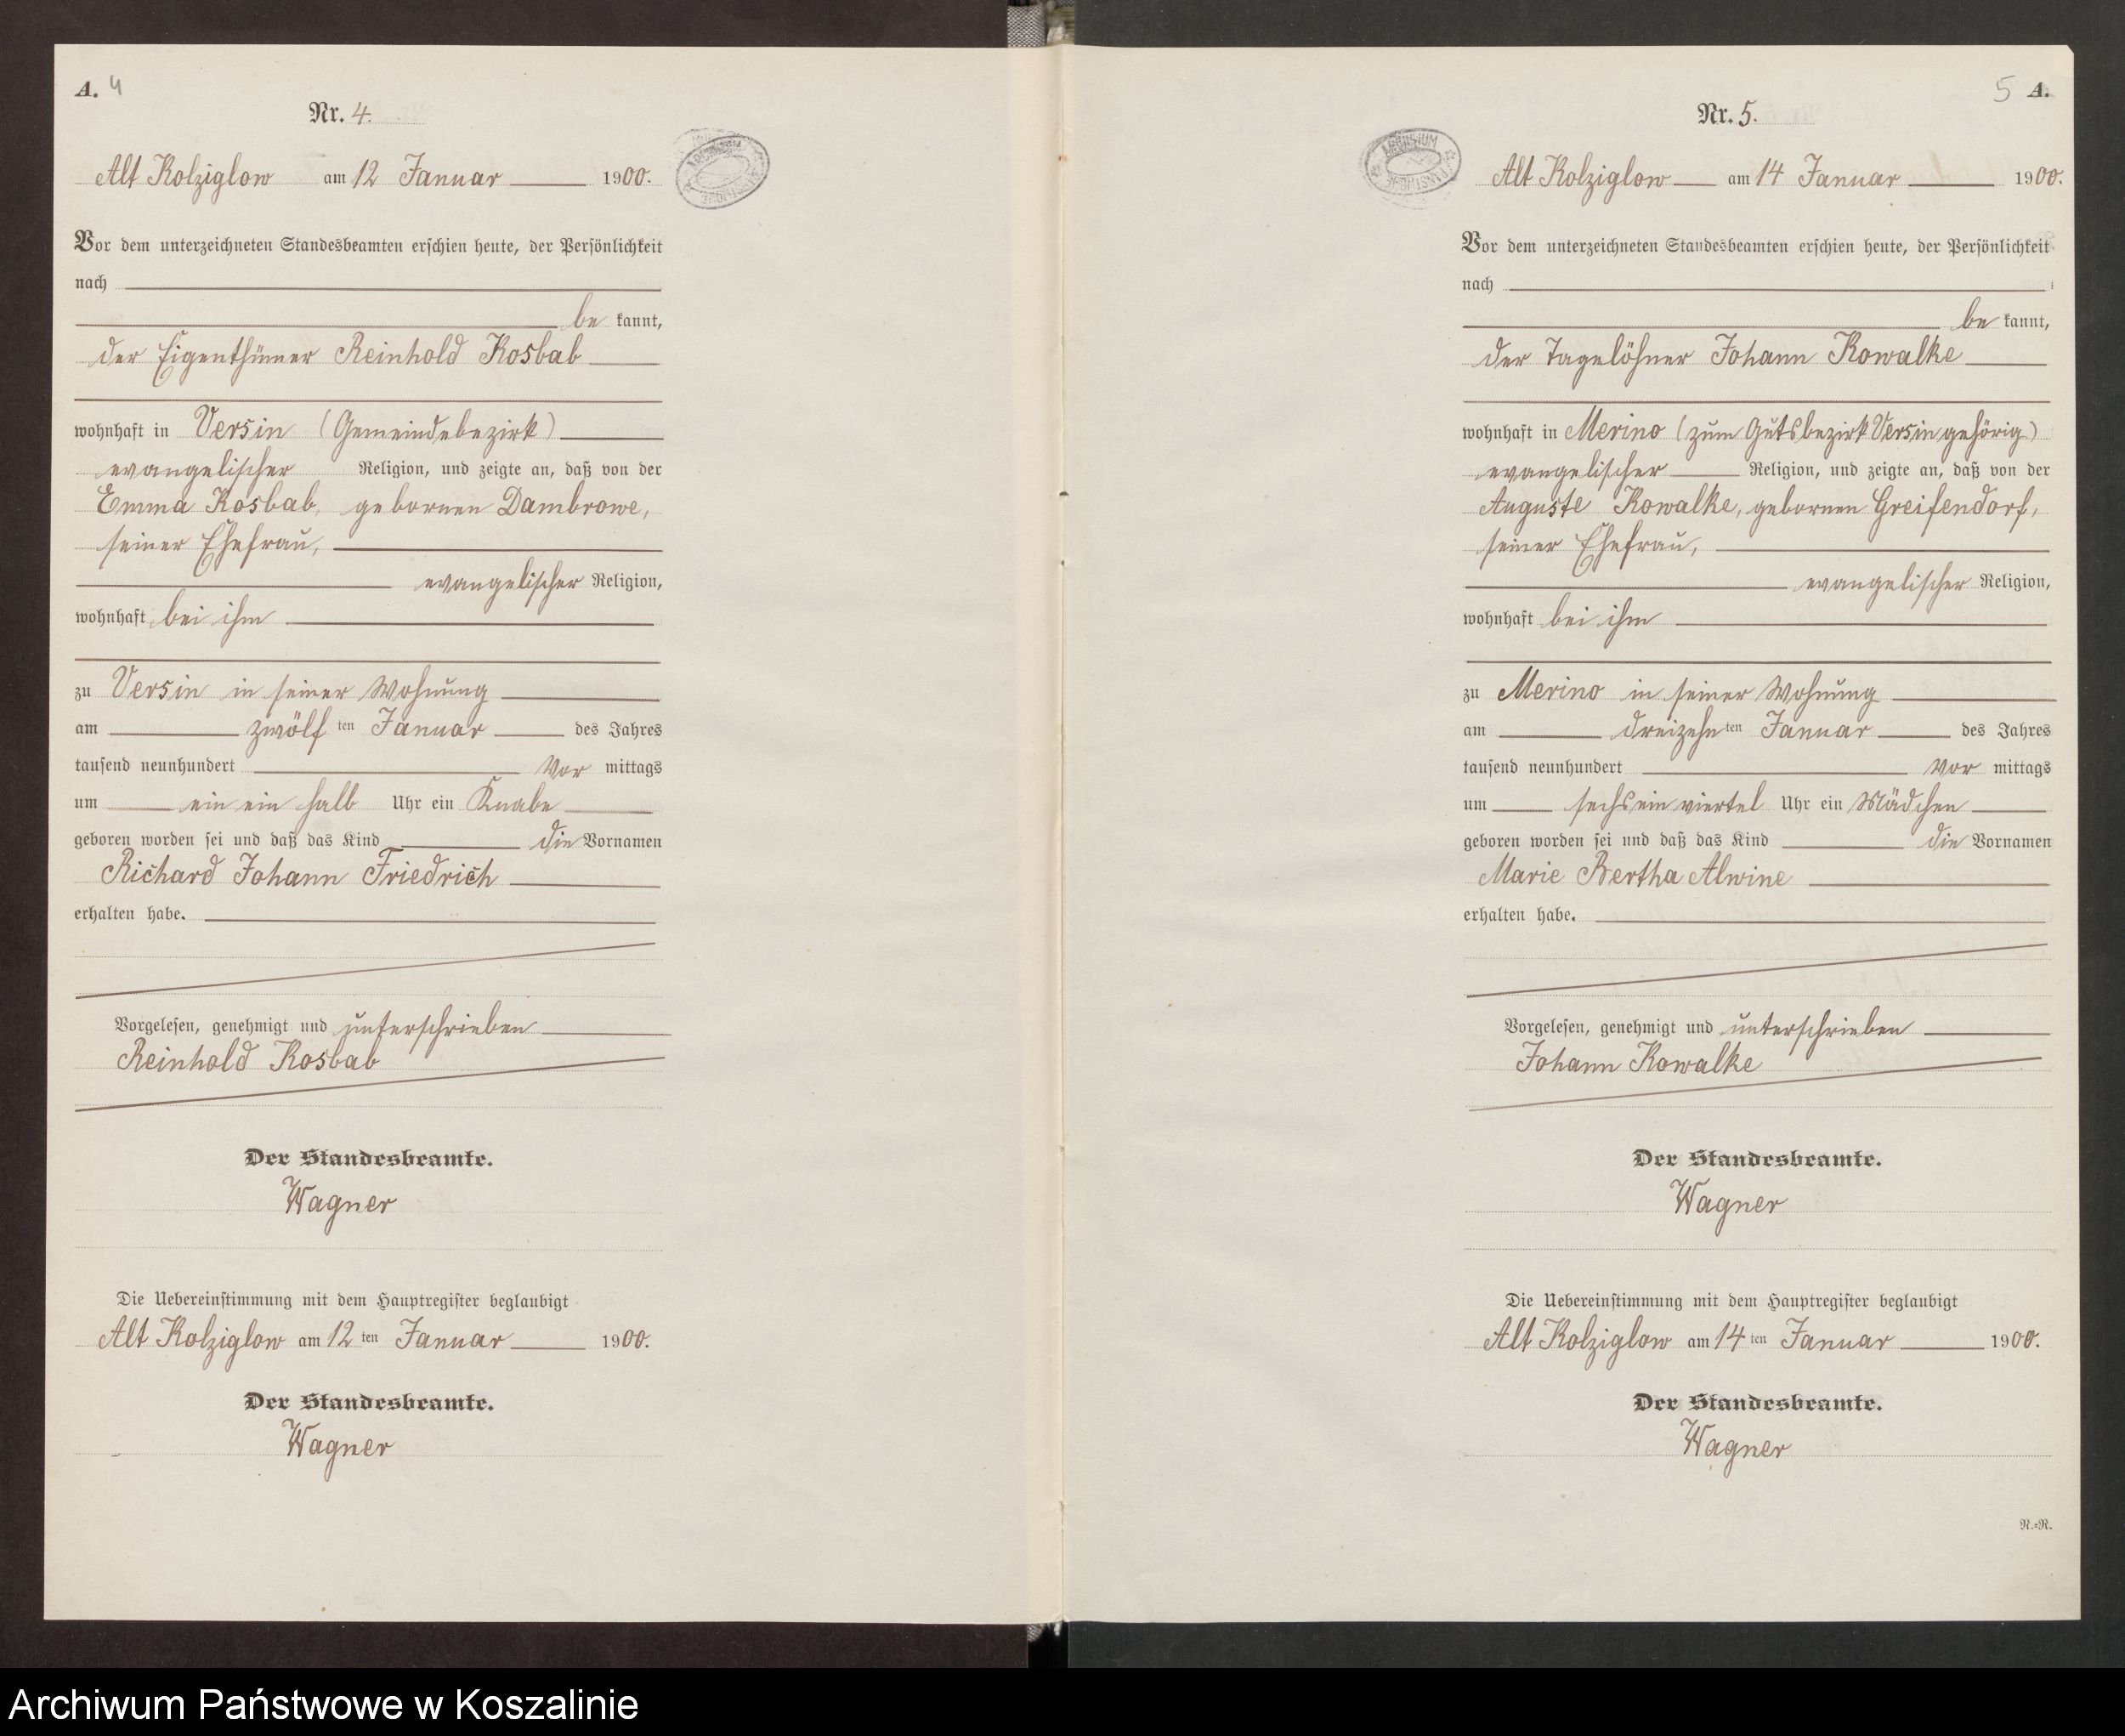 A. 4
Nr. 4.
Alt Kolziglow am 12 Januar 1900.
Vor dem unterzeichneten Standesbeamten erschien heute, der Persönlichkeit
nach
be kannt,
der Eigenthümer Reinhold Kosbab
wohnhaft in Versin (Gemeindebezirk)
evangelischer Religion, und zeigte an, daß von der
Emma Kosbab, gebornen Dambrowe,
seiner Ehefrau,
evangelischer Religion,
wohnhaft bei ihm
zu Versin in seiner Wohnung
am zwölf ten Januar des Jahres
tausend neunhundert Vor mittags
um ein ein halb Uhr ein Knabe
geboren worden sei und daß das Kind die Vornamen
Richard Johann Friedrich
erhalten habe.
Vorgelesen, genehmigt und unterschrieben
Reinhold Kosbab
Der Standesbeamte.
Wagner
Die Uebereinstimmung mit dem Hauptregister beglaubigt
Alt Kolziglow am 12 ten Januar 1900.
Der Standesbeamte.
Wagner
5 A.
Nr. 5.
ARCHIWUM
Alt Kolziglow am 14 Januar 1900.
Vor dem unterzeichneten Standesbeamten erschien heute, der Persönlichkeit
nach
be kannt,
der Tagelöhner Johann Kowalke
wohnhaft in Merino (zum Gutsbezirk Versin gehörig)
evangelischer Religion, und zeigte an, daß von der
Auguste Kowalke, gebornen Greifendorf,
seiner Ehefrau,
evangelischer Religion,
wohnhaft bei ihm
zu Merino in seiner Wohnung
am dreizehn ten Januar des Jahres
tausend neunhundert Vor mittags
um sechs ein viertel Uhr ein Mädchen
geboren worden sei und daß das Kind die Vornamen
Marie Bertha Alwine
erhalten habe.
Vorgelesen, genehmigt und unterschrieben
Johann Kowalke
Der Standesbeamte.
Wagner
Die Uebereinstimmung mit dem Hauptregister beglaubigt
Alt Kolziglow am 14 ten Januar 1900.
Der Standesbeamte.
Wagner
N.=R.
Archiwum Państwowe w Koszalinie